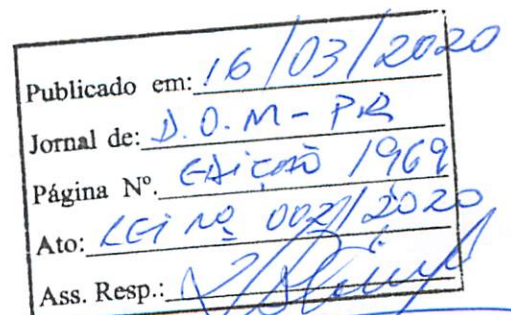 Publicado em: 16/03/2020
Jornal de: D.O.M - PR
Página Nº. EDIÇÃO 1969
Ato: LEI Nº 002/2020
Ass. Resp.: